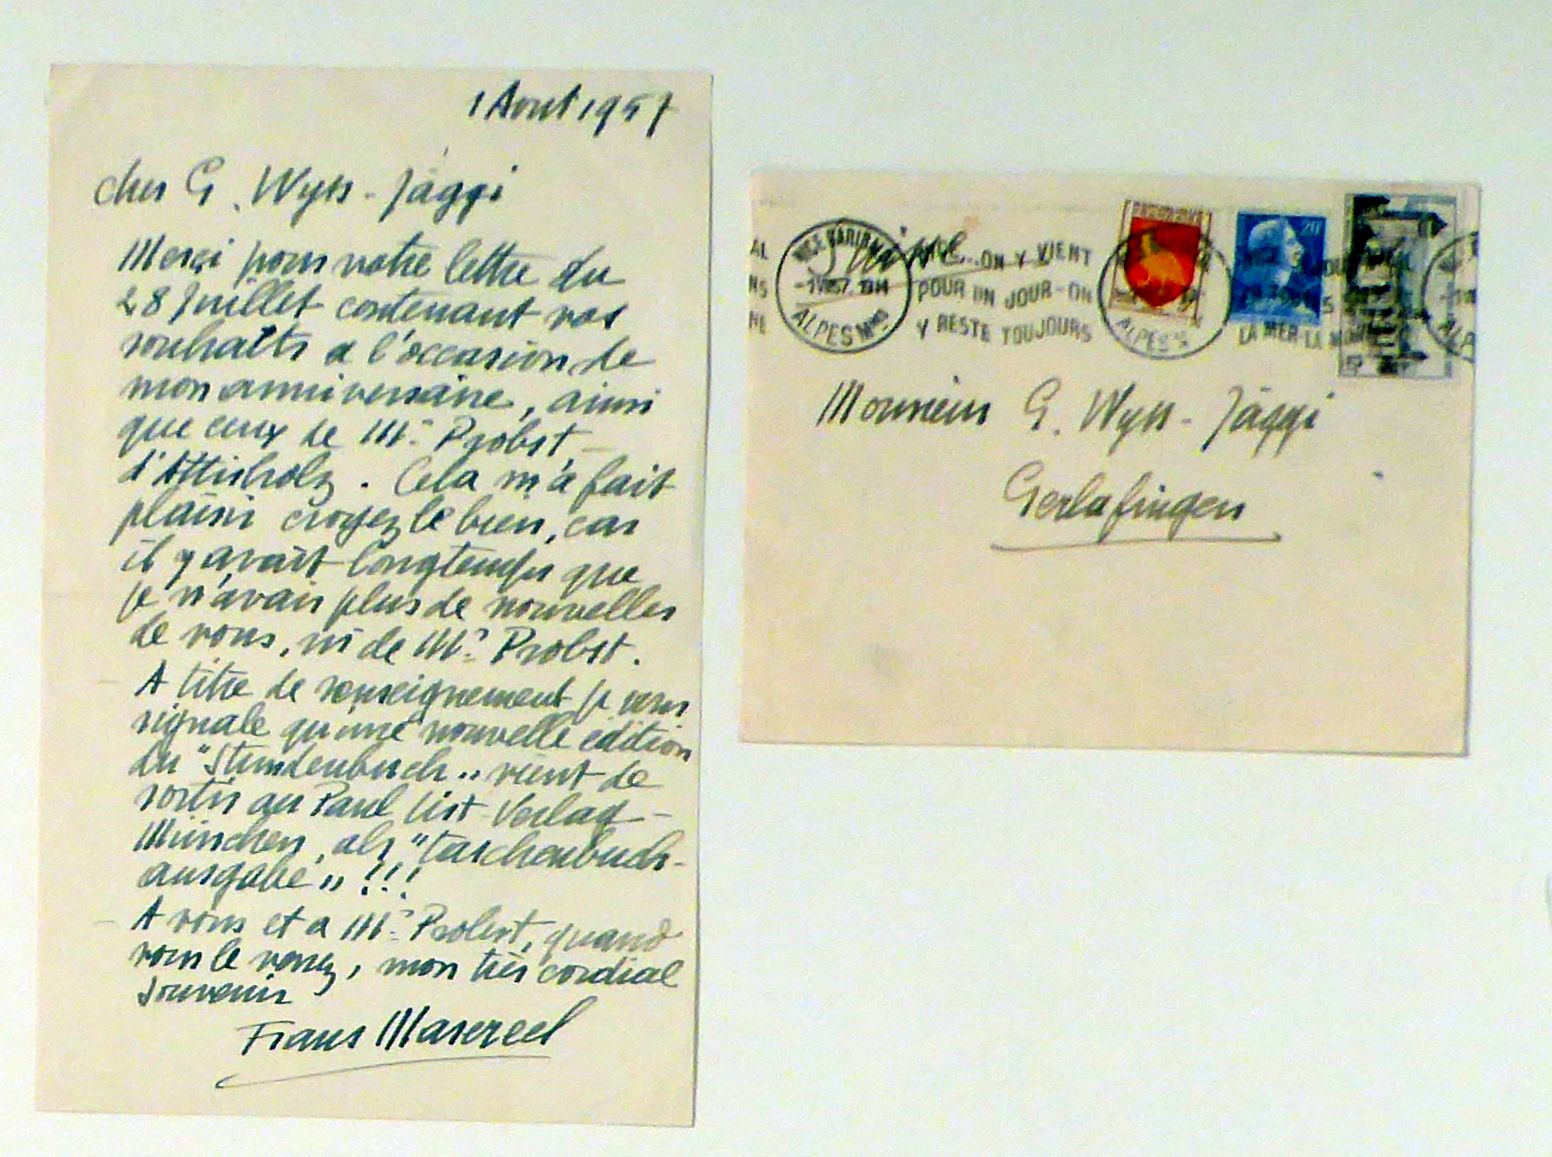 1 Aout 1957
cher G. Wyss-Jäggi
Merci pour votre lettre du
28 Juillet contenant vos
souhaits a l'occasion de
mon anniversaire, ainsi
que ceux de Mr. Probst,
d'Attisholz. Cela m'a fait
plaisir croyez le bien, car
il y avait longtemps que
je n'avais plus de nouvelles
de vous, ni de Mr. Probst.
A titre de renseignement je vous
signale qu'une nouvelle édition
du "Stundenbuch" vient de
sortir au Paul List-Verlag-
München, als "Taschenbuch-
ausgabe" !!!
A vous et a Mr. Probst, quand
vous le verrez, mon très cordial
souvenir
Frans Masereel
NICE
ALPES Mmes
ON Y VIENT
POUR UN JOUR-ON
Y RESTE TOUJOURS
ALPES
20F
LA MER-LA
Monsieur G. Wyss-Jäggi
Gerlafingen